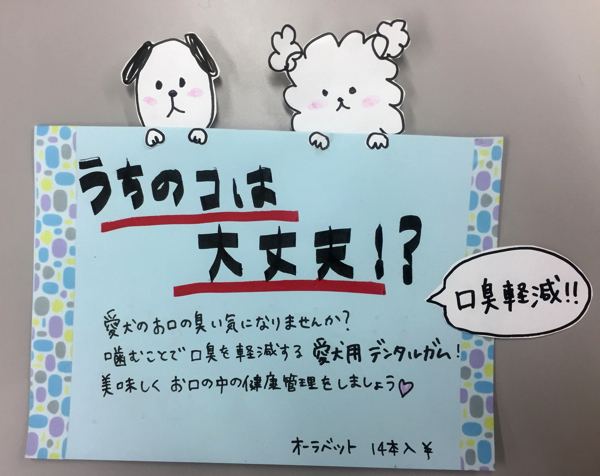 うちのコは
大丈夫!?
口臭軽減!!
愛犬のお口の臭い気になりませんか?
噛むことで口臭を軽減する 愛犬用デンタルガム!
美味しく お口の中の健康管理をしましょう♡
オーラベット 14本入 ¥